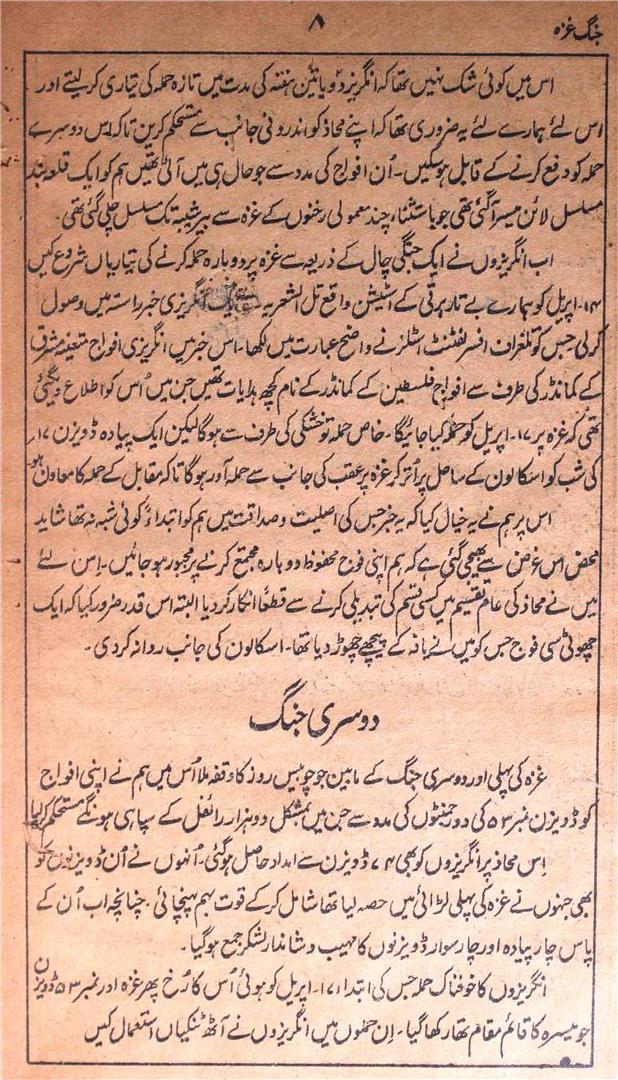 جنگ غزہ
۸
اس میں کوئی شک نہیں تھا کہ انگریز دو یا تین ہفتہ کی مدت میں تازہ حملہ کی تیاری کر لیتے اور
اس لئے ہمارے لئے یہ ضروری تھا کہ اپنے محاذ کو اندرونی جانب سے مستحکم کریں تاکہ اس دوسرے
حملہ کو دفع کرنے کے قابل ہو سکیں۔ اُن افواج کی مدد سے جو حال ہی میں آئی تھیں ہم کو ایک قلعہ بند
مسلسل لائن میسر آ گئی تھی جو باستثناء چند معمولی رخنوں کے غزہ سے بیر شیبہ تک مسلسل چلی گئی تھی۔
اب انگریزوں نے ایک جنگی چال کے ذریعہ سے غزہ پر دوبارہ حملہ کرنے کی تیاریاں شروع کیں
۱۴۔ اپریل کو ہمارے بے تار برقی کے اسٹیشن واقع تل الشعریہ انگریزی خبر راستہ میں وصول
کر لی جس کو تلغراف افسر لفٹنٹ اسٹلز نے واضح عبارت میں لکھا۔ اس خبر میں انگریزی افواج متعینہ مشرق
کے کمانڈر کی طرف سے افواج فلسطین کے کمانڈر کے نام کچھ ہدایات تھیں جن میں اُس کو اطلاع دیگئی
تھی کہ غزہ پر ۱۷۔ اپریل کو حملہ کیا جائیگا۔ خاص حملہ تو خشکی کی طرف سے ہوگا لیکن ایک پیادہ ڈویزن ۱۷
کی شب کو اسکالون کے ساحل پر اُتر کر غزہ پر عقب کی جانب سے حملہ آور ہوگا تاکہ مقابل کے حملہ کا معاون ہو۔
اس پر ہم نے یہ خیال کیا کہ یہ خبر جس کی اصلیت و صداقت میں ہم کو ابتداءً کوئی شبہ نہ تھا شاید
محض اس غرض سے بھیجی گئی ہے کہ ہم اپنی فوج محفوظ دوبارہ مجتمع کرنے پر مجبور ہو جائیں۔ اِس لئے
میں نے محاذ کی عام تقسیم میں کسی قسم کی تبدیلی کرنے سے قطعاً انکار کر دیا البتہ اس قدر ضرور کیا کہ ایک
چھوٹی سی فوج جس کو میں نے کے پیچھے چھوڑ دیا تھا۔ اسکالون کی جانب روانہ کر دی۔
دوسری جنگ
غزہ کی پہلی اور دوسری جنگ کے مابین جو چوبیس روز کا وقفہ ملا اُس میں ہم نے اپنی افواج
کو ڈویزن نمبر ۵۳ کی دو رجمنٹوں کی مدد سے جن میں بمشکل دو ہزار رائفل کے سپاہی ہونگے مستحکم کر لیا
اِس محاذ پر انگریزوں کو بھی ۷۴ ڈویزن سے امداد حاصل ہو گئی۔ اُنھوں نے اُن ڈویزنوں کو
بھی جنہوں نے غزہ کی پہلی لڑائی میں حصہ لیا تھا شامل کر کے قوت بہم پہنچائی۔ چنانچہ اب اُن کے
پاس چار پیادہ اور چار سوار ڈویزنوں کا مہیب و شاندار لشکر جمع ہو گیا۔
انگریزوں کا خوفناک حملہ جس کی ابتدا ۱۷۔ اپریل کو ہوئی اُس کا رُخ پھر غزہ اور نمبر ۵۳ ڈویزن
جو میسرہ کا قائم مقام تھا رکھا گیا۔ اِن حملوں میں انگریزوں نے آٹھ ٹنکیاں استعمال کیں